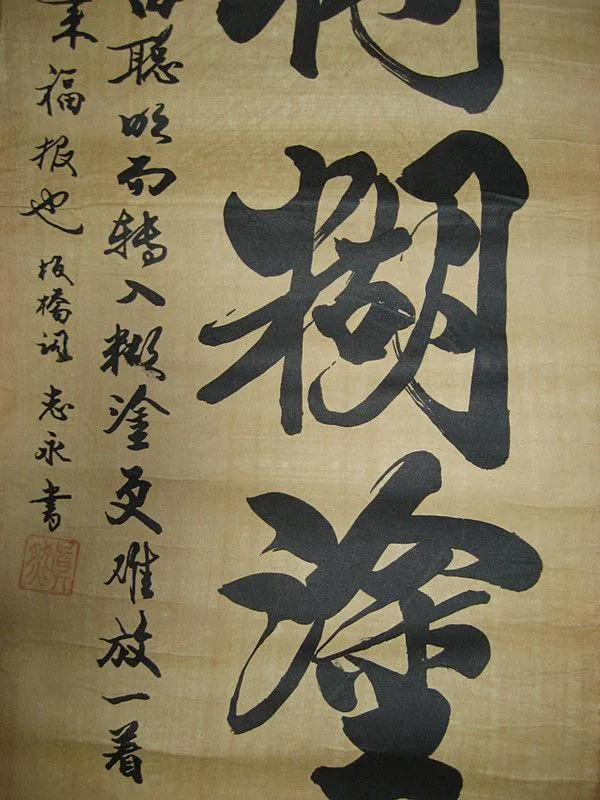 糊塗
由聰明而轉入糊塗更难放一着
来福报也 板橋詞 志永書